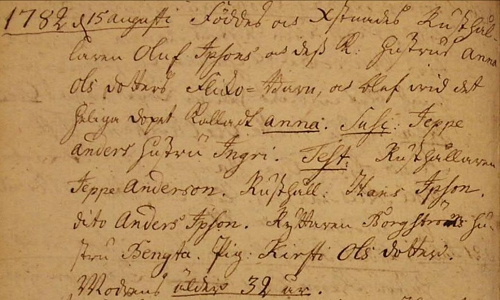 1782 d 15 augusti Föddes och Xstnades Rusthål-
laren Oluf Ipsons och dess K: hustrus Anna
Ols dotters Flicko=Barn, och blef wid det
heliga dopet Kalladt anna. Susc: Jeppe
Anders hustru Ingri. Test. Rusthållaren
Jeppe Anderson. Rusthåll: Hans Ipson.
dito Anders Ipson. Ryttaren Borgströms hu-
stru Bengta. Pig: Kirsti Ols dotter.
Modrens ålder 32 år.